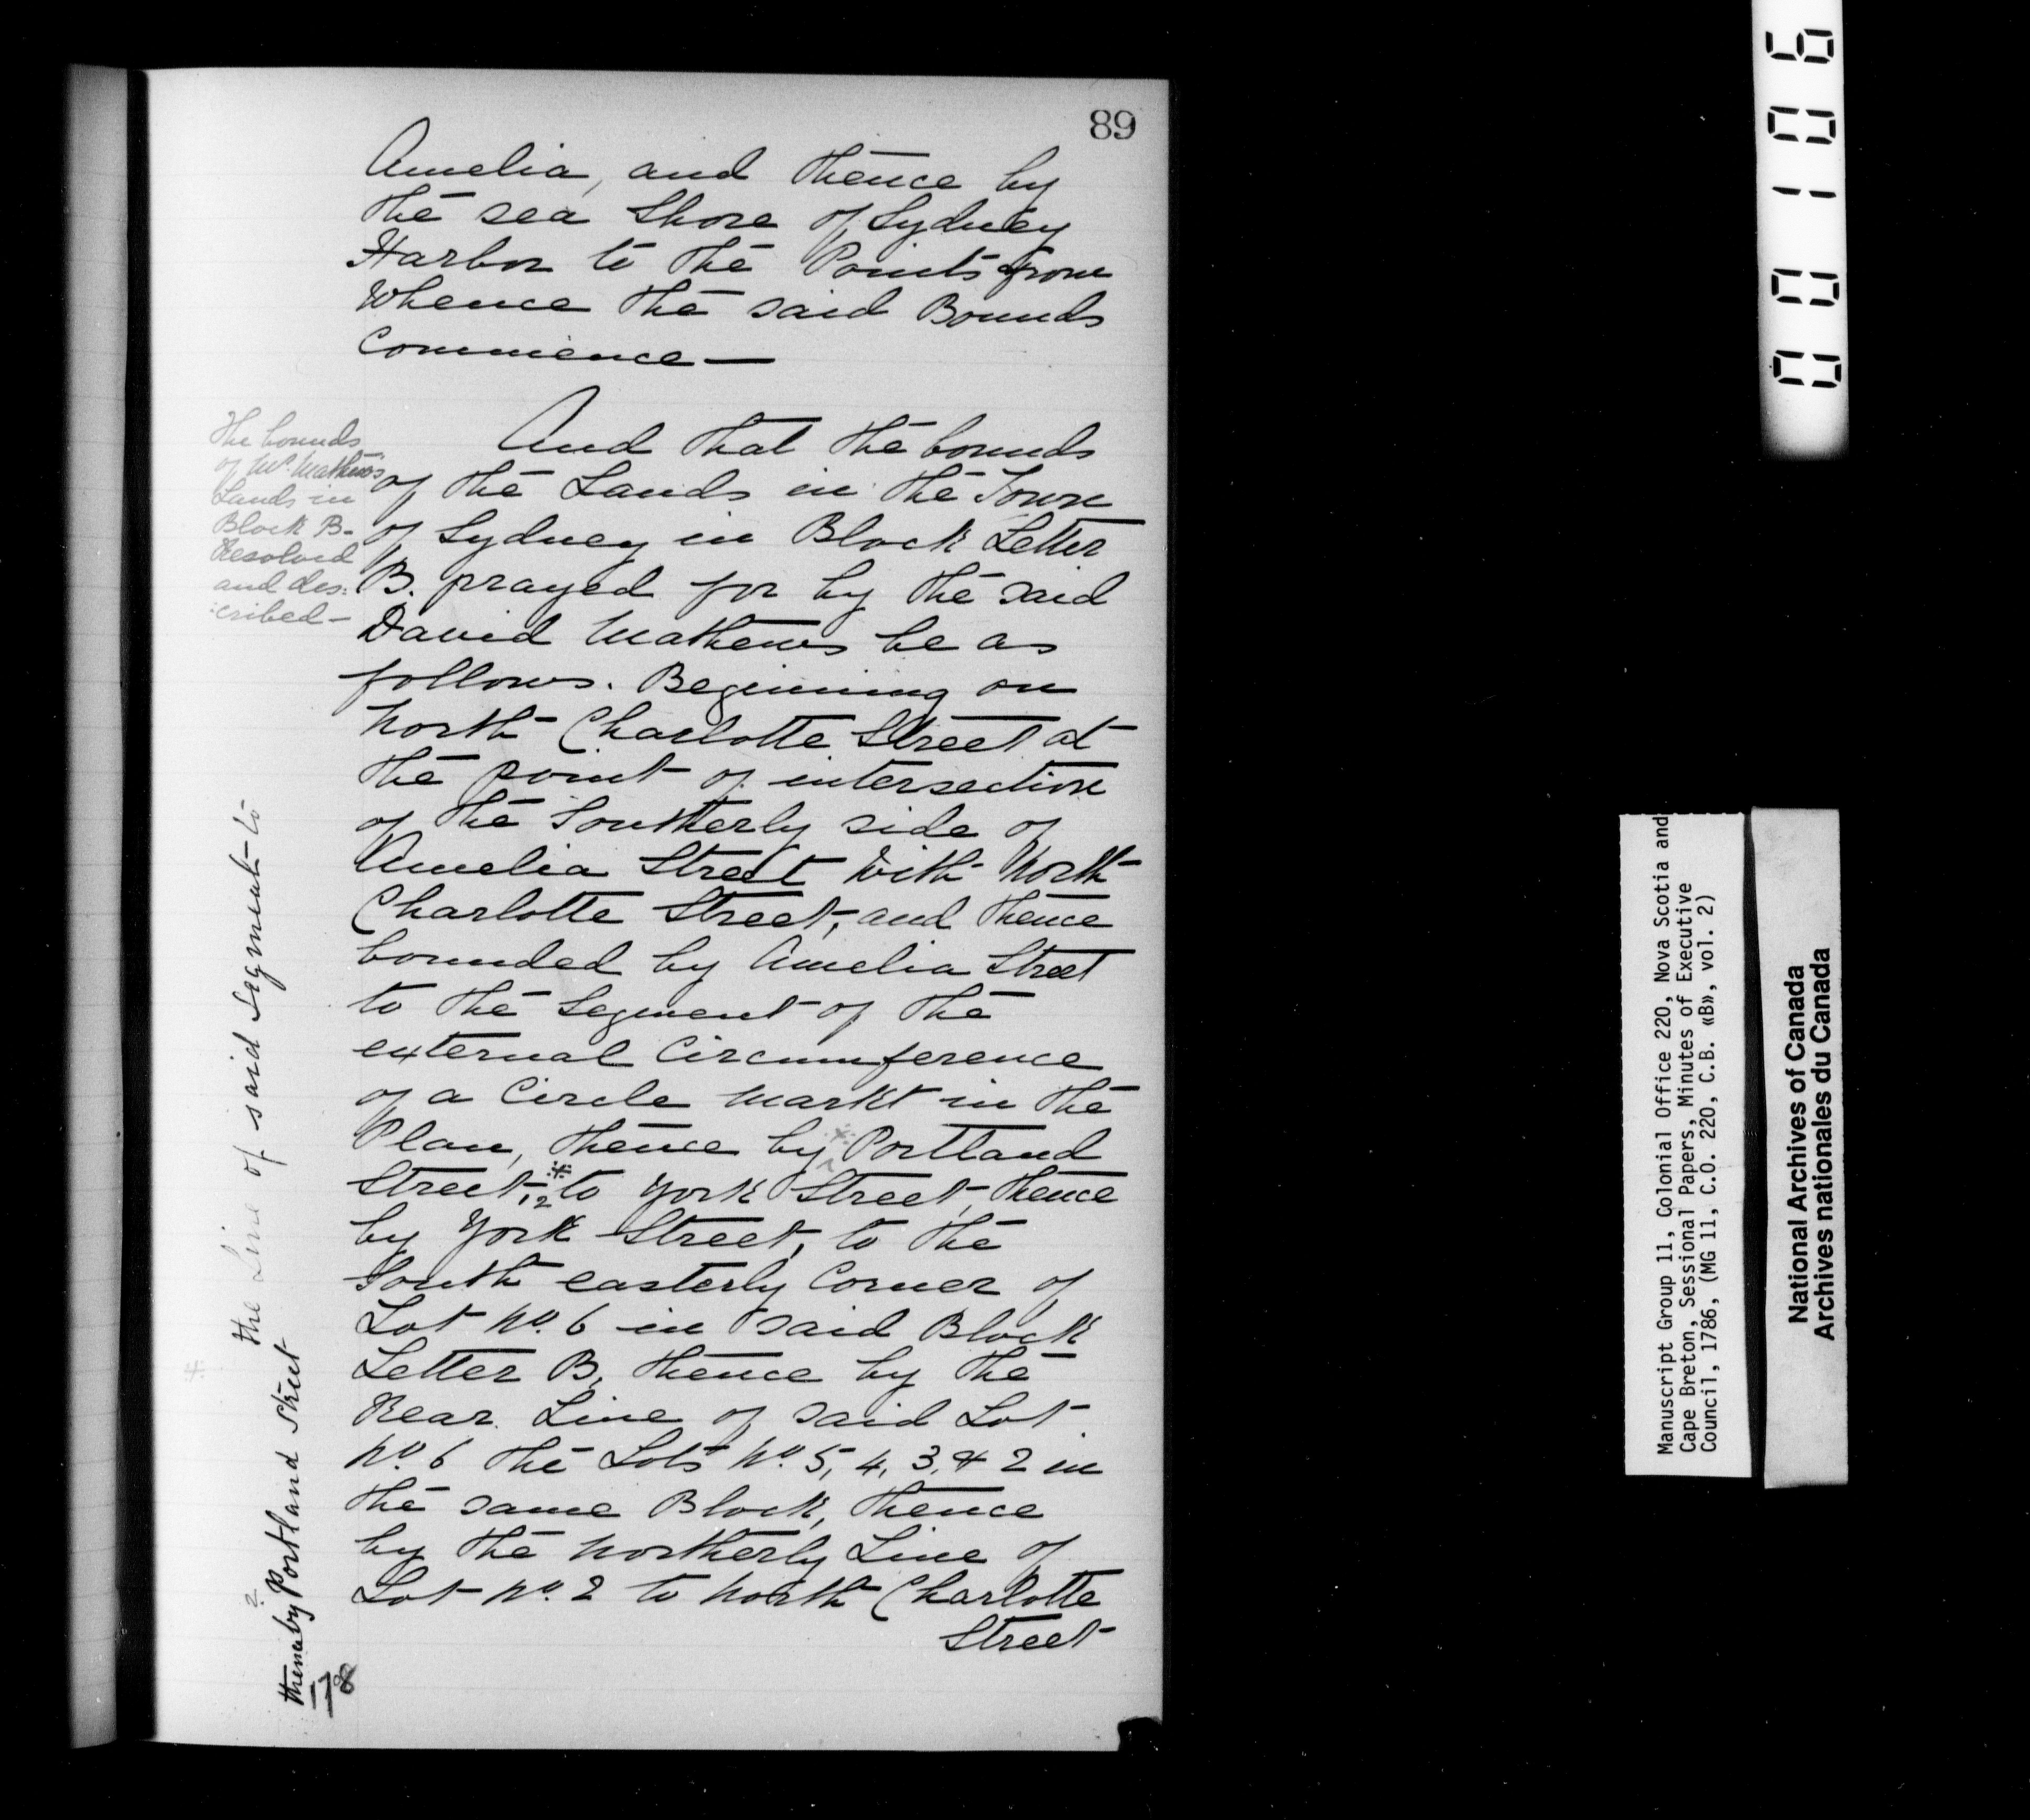 89
Amelia, and thence by
the sea Shore of Sydney
Harbor to the Points from
Whence the said Bounds
Commence —
The bounds
of Mr. Mathews
Lands in
Block B-
Resolved
and des:
:cribed -
And that the bounds
of the Lands in the Town
of Sydney in Block Letter
B. prayed for by the said
David Mathews be as
follows. Beginning on
North Charlotte Street at
the point of intersection
of the Southerly side of
Amelia Street With North
Charlotte Street, and thence
bounded by Amelia Street
to the Segment of the
external Circumference
of a Circle markt in the
Plan, thence by * Portland
Street, * 2 to York Street, thence
by York Street, to the
South easterly Corner of
Lot No. 6 in said Block
Letter B, thence by the
Rear Line of said Lot
No. 6 the Lots No. 5, 4, 3, & 2 in
the same Block, thence
by the northerly Line of
Lot No. 2 to North Charlotte
Street
the Line of said Segment to
2
thence by Portland Street
178
00106
Manuscript Group 11, Colonial Office 220, Nova Scotia and
Cape Breton, Sessional Papers, Minutes of Executive
Council, 1786, (MG 11, C.O. 220, C.B. «B», vol. 2)
National Archives of Canada
Archives nationales du Canada